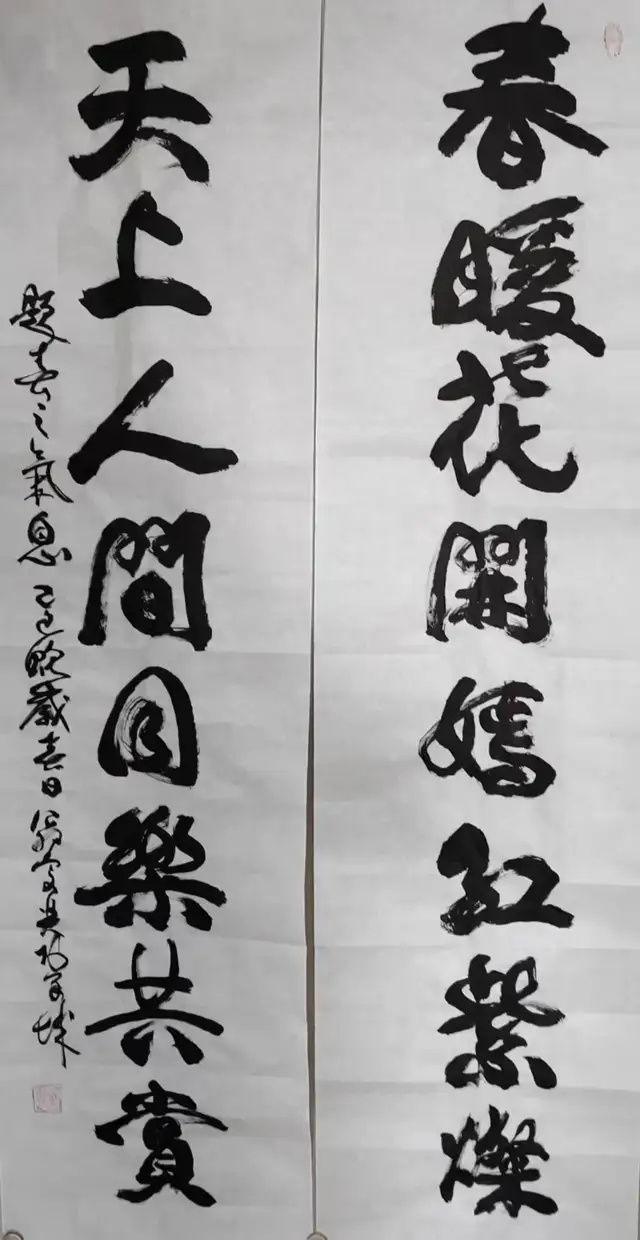 春暖花開嫣紅紫燦
天上人間同樂共賞
題春之氣息 乙巳晚歲春日